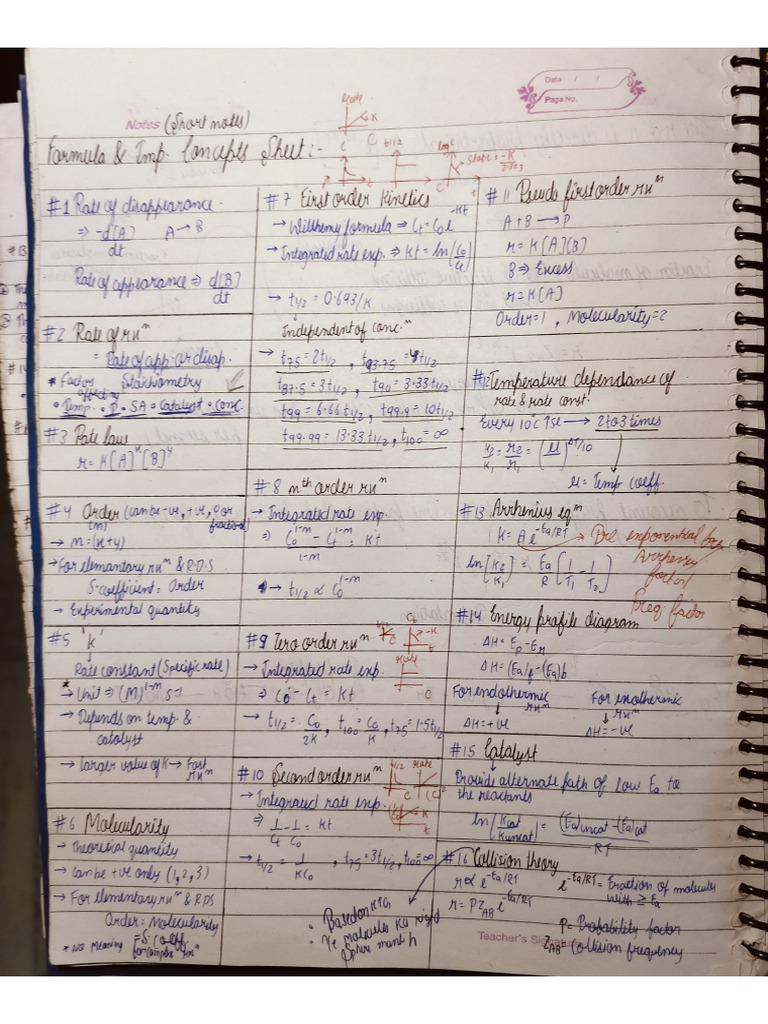 Data / /
Page No.
Notes (Short notes)
Formula & Imp. Concepts Sheet :-
#1 Rate of disappearance
⇒ -d[A]/dt A → B
Rate of appearance ⇒ d[B]/dt
#2 Rate of rxⁿ
= Rate of app. or disap.
Stoichiometry
* Factor affecting
• Temp. • P • SA • Catalyst • Conc.
#3 Rate law
r = K[A]ˣ[B]ʸ
#4 Order (can be -ve, +ve, 0 or fractional)
(n)
→ n = (x+y)
→ For elementary rxⁿ & R.D.S
S-coefficient = Order
→ Experimental quantity
#5 'K'
Rate constant (Specific rate)
* → Unit ⇒ (M)¹⁻ⁿ s⁻¹
→ Depends on temp &
catalyst
→ larger value of K → Fast rxⁿ
#6 Molecularity
→ Theoretical quantity
→ Can be +ve only (1, 2, 3)
→ For elementary rxⁿ & RDS
Order = Molecularity
= S. Coeff
* NO Meaning for complex rxⁿ
rate
K
C
t1/2
log C
slope = -K/2.303
t
#7 First order Kinetics
→ Wilhemy formula ⇒ Ct = C0e^-Kt
→ Integrated rate exp. ⇒ Kt = ln(C0/Ct)
→ t1/2 = 0.693/K
Independent of concⁿ
→ t75 = 2t1/2 , t93.75 = 4t1/2
t87.5 = 3t1/2 , t90 = 3.33t1/2
t99 = 6.66t1/2 , t99.9 = 10t1/2
t99.99 = 13.33t1/2 , t100 = ∞
#8 nth order rxⁿ
→ Integrated rate exp.
⇒ (C0^1-n - Ct^1-n)/(1-n) = Kt
→ t1/2 ∝ C0^1-n
#9 Zero order rxⁿ
→ Integrated rate exp.
⇒ C0 - Ct = Kt
→ t1/2 = C0/2K , t100 = C0/K , t75 = 1.5t1/2
#10 Second order rxⁿ
→ Integrated rate exp.
⇒ 1/Ct - 1/C0 = Kt
→ t1/2 = 1/KC0 , t75 = 3t1/2 , t100 = ∞
• Based on KTG
molecules
rigid
sphere
#11 Pseudo first order rxⁿ
A + B → P
r = K[A][B]
B ⇒ Excess
r = K[A]
Order = 1 , Molecularity = 2
#12 Temperature dependance of
rate & rate const.
Every 10°C ↑se → 2 to 3 times
K2/K1 = r2/r1 = (μ)^ΔT/10
μ = Temp coeff.
#13 Arrhenius eqⁿ
K = Ae^-Ea/RT
Pre exponential fac
Arrhenius factor
Freq. factor
ln[K2/K1] = Ea/R [1/T1 - 1/T2]
#14 Energy profile diagram
ΔH = Ep - Er
ΔH = (Ea)f - (Ea)b
For endothermic rxⁿ
ΔH = +ve
For exothermic rxⁿ
ΔH = -ve
#15 Catalyst
Provide alternate path of low Ea to
the reactants
ln(Kcat/Kuncat) = ((Ea)uncat - (Ea)cat)/RT
#16 Collision theory
r ∝ e^-Ea/RT
e^-Ea/RT = Fraction of molecules
with ≥ Ea
r = PZAB e^-Ea/RT
P = Probability factor
ZAB = Collision frequency
Teacher's Signature